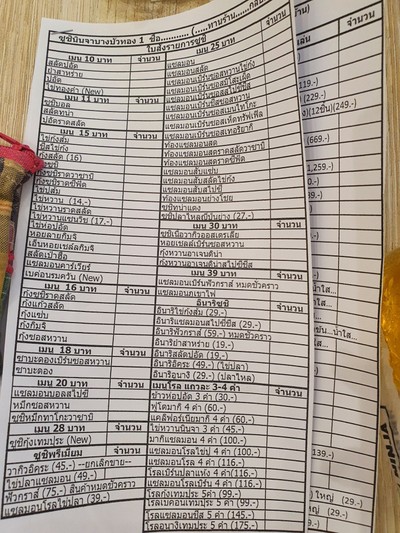 ซูชินินจาบางบัวทอง 1 ชื่อ........... (.....ทานร้าน......กลับ
ใบสั่งรายการซูชิ
เมนู 10 บาท จำนวน
สลัดปูอัด
ยำสาหร่าย
ปูอัด
ไข่ทองคำ (New)
เมนู 11 บาท จำนวน
ซูชิบอล
สลัดทูน่า
ปูอัดราดสลัด
เมนู 15 บาท จำนวน
ไข่กุ้งส้ม
ชีสไข่กุ้ง
กุ้งสลัด (16)
กุ้งซูชิ
กุ้งซูชิราดวาซาบิ
กุ้งซูชิราดชีฟู้ด
ไข่ปูส้ม
ไข่หวาน (14.-)
ไข่หวานราดสลัด
ไข่หวานแซนวิช (17.-)
ไข่ห่อปูอัด
หอยลายกิมจิ
เอ็นหอยเชลล์กิมจิ
สลัดเป๋าฮื้อ
แซลมอนคาร์เวียร์
เบค่อนรมควัน (New)
เมนู 16 บาท จำนวน
กุ้งซูชิราดสลัด
กุ้งแซ่บ
กุ้งกิมจิ
กุ้งซอสหวาน
เมนู 18 บาท จำนวน
ซาบะดองเบิร์นซอสหวาน
ซาบะดอง
เมนู 20 บาท จำนวน
แซลมอนบอลสไปซี่
หมึกซอสหวาน
ซูชิหมึกทาโกะวาซาบิ
เมนู 28 บาท จำนวน
ซูชิกุ้งเทมปุระ (New)
ซูชิพรีเมี่ยม จำนวน
วากิวอิคุระ (45.-) --ยกเลิกขาย--
ไข่ปลาแซลมอน (49.-)
ฟัวกราส์ (75.-) สินค้าหมดชั่วคราว
แซลมอนโรลไข่ปลา (39.-)
เมนู 25 บาท จำนวน
แซลมอน
แซลมอนสลัด
แซลมอนเบิร์นซอสหวานไข่กุ้ง
แซลมอนเบิร์นซอสสไปซี่ชีส
แซลมอนเบิร์นซอสเมนไทโกะ
แซลมอนเบิร์นซอสเห็ดทรัฟเฟิล
แซลมอนเบิร์นซอสเทอริยากิ
ท้องแซลมอนสด
ท้องแซลมอนสดราดสลัดวาซาบิ
ท้องแซลมอนสดราดชีฟู้ด
แซลมอนสับแซ่บ
แซลมอนสับสลัดไข่กุ้ง
แซลมอนสับสไปซี่
ท้องแซลมอนย่างไข่กุ้ง
ซูชิทูน่าแดง
ซูชิปลาไหลญี่ปุ่นย่าง (27.-)
เมนู 30 บาท จำนวน
ซูชิเนื้อวากิวออสเตรเลีย
หอยเชลล์เบิร์นซอสหวาน
กุ้งหวานอาเจนติน่า
กุ้งหวานอาเจนติน่าสไปซี่ชีส
เมนู 39 บาท จำนวน
แซลมอนเบิร์นฟัวกราส์ หมดชั่วคราว
แซลมอนภูเขาไฟ
อินาริซูชิ จำนวน
อินาริไข่กุ้งส้ม (29.-)
อินาริแซลมอนสไปซี่ชีส (29.-)
อินาริฟัวกราส์ (59.-) หมดชั่วคราว
อินาริยำสาหร่าย (19.-)
อินาริสลัดปูอัด (19.-)
อินาริอิคุระ (49.-) (ไข่ปลา)
อินาริอูนางิ (29.-) (ปลาไหล)
เมนูโรล แถวละ 3-4 คำ จำนวน
ข้าวห่อปูอัด 3 คำ (30.-)
ฟูโตมากิ 4 คำ (60.-)
แคลิฟอร์เนียมากิ 4 คำ (60.-)
ไข่หวานนินจา 3 คำ (45.-)
มากิแซลมอน 4 คำ (100.-)
แซลมอนโรลไข่ปู 4 คำ (100.-)
แซลมอนโรล 4 คำ (116.-)
โรลเบิร์นปลาแห้ง 4คำ(116.-)
แซลมอนเบิร์นโรล 4 คำ (116.-)
โรลกุ้งเทมปุระ 5คำ (99.-)
โรลเบค่อนเทมปุระ 5คำ (99.-)
โรลแซลมอนชีส 5 คำ (145.-)
โรลอูนางิเทมปุระ 5คำ (175.-)
จำนวน
(229.-)
(12ชิ้น)(249.-)
(669.-)
,259.-)
139.-)
ใหญ่ (29.-)